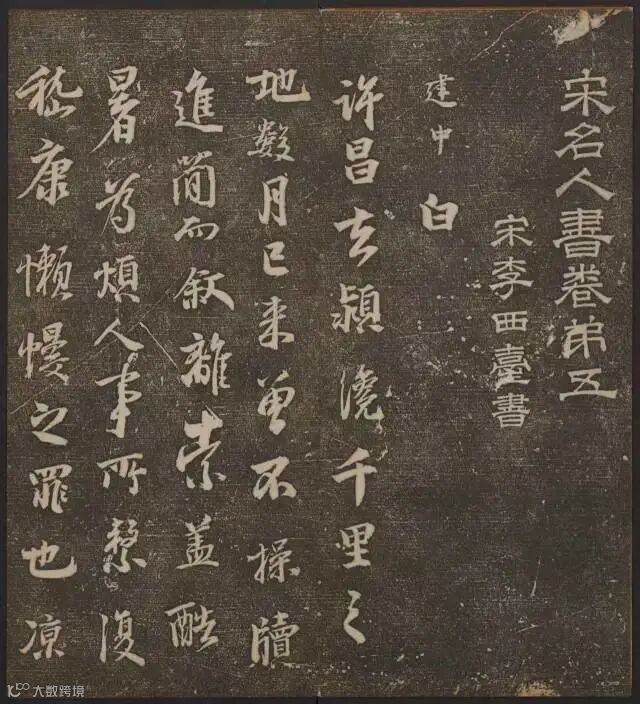 宋名人書卷弟五
宋李西臺書
建中白
許昌去潁澆千里之
地數月已来曽不操牘
進簡而叙離索盖酷
暑為煩人事所繫復
嵇康懶慢之罪也凉
大数跨境